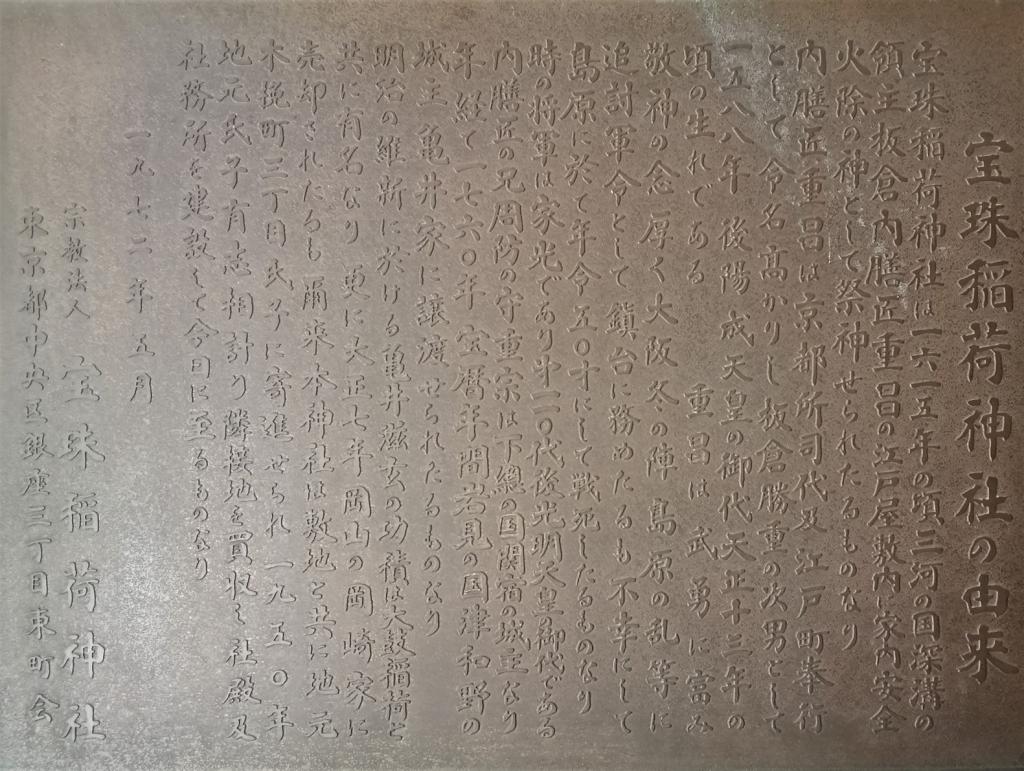 宝珠稲荷神社の由来
宝珠稲荷神社は一六一五年の頃三河の国深溝の
領主板倉内膳匠重昌の江戸屋敷内に家内安全
火除の神として祭神せられたるものなり
内膳匠重昌は京都所司代及江戸町奉行
として令名高かりし板倉勝重の次男として
一五八八年 後陽成天皇の御代天正十三年の
頃の生れである 重昌は武勇に富み
敬神の念厚く大阪冬の陣 島原の乱等に
追討軍令として鎮台に務めたるも不幸にして
島原に於て年令五〇才にして戦死したるものなり
時の将軍は家光であり 一一〇代後光明天皇の御代である
内膳匠の兄周防の守重宗は下總の国関宿の城主なり
年経て一七六〇年宝暦年間岩見の国津和野の
城主亀井家に譲渡せられたるものなり
明治の維新に於ける亀井茲玄の功積は太鼓稲荷と
共に有名なり 更に大正七年岡山の岡崎家に
売却されたるも爾来本神社は敷地と共に地元
木挽町三丁目氏子に寄進せられ一九五〇年
地元氏子有志相計り隣接地を買収し社殿及
社務所を建設して今日に至るものなり
一九七二年五月
宗教法人 宝珠稲荷神社
東京都中央区銀座三丁目東町会